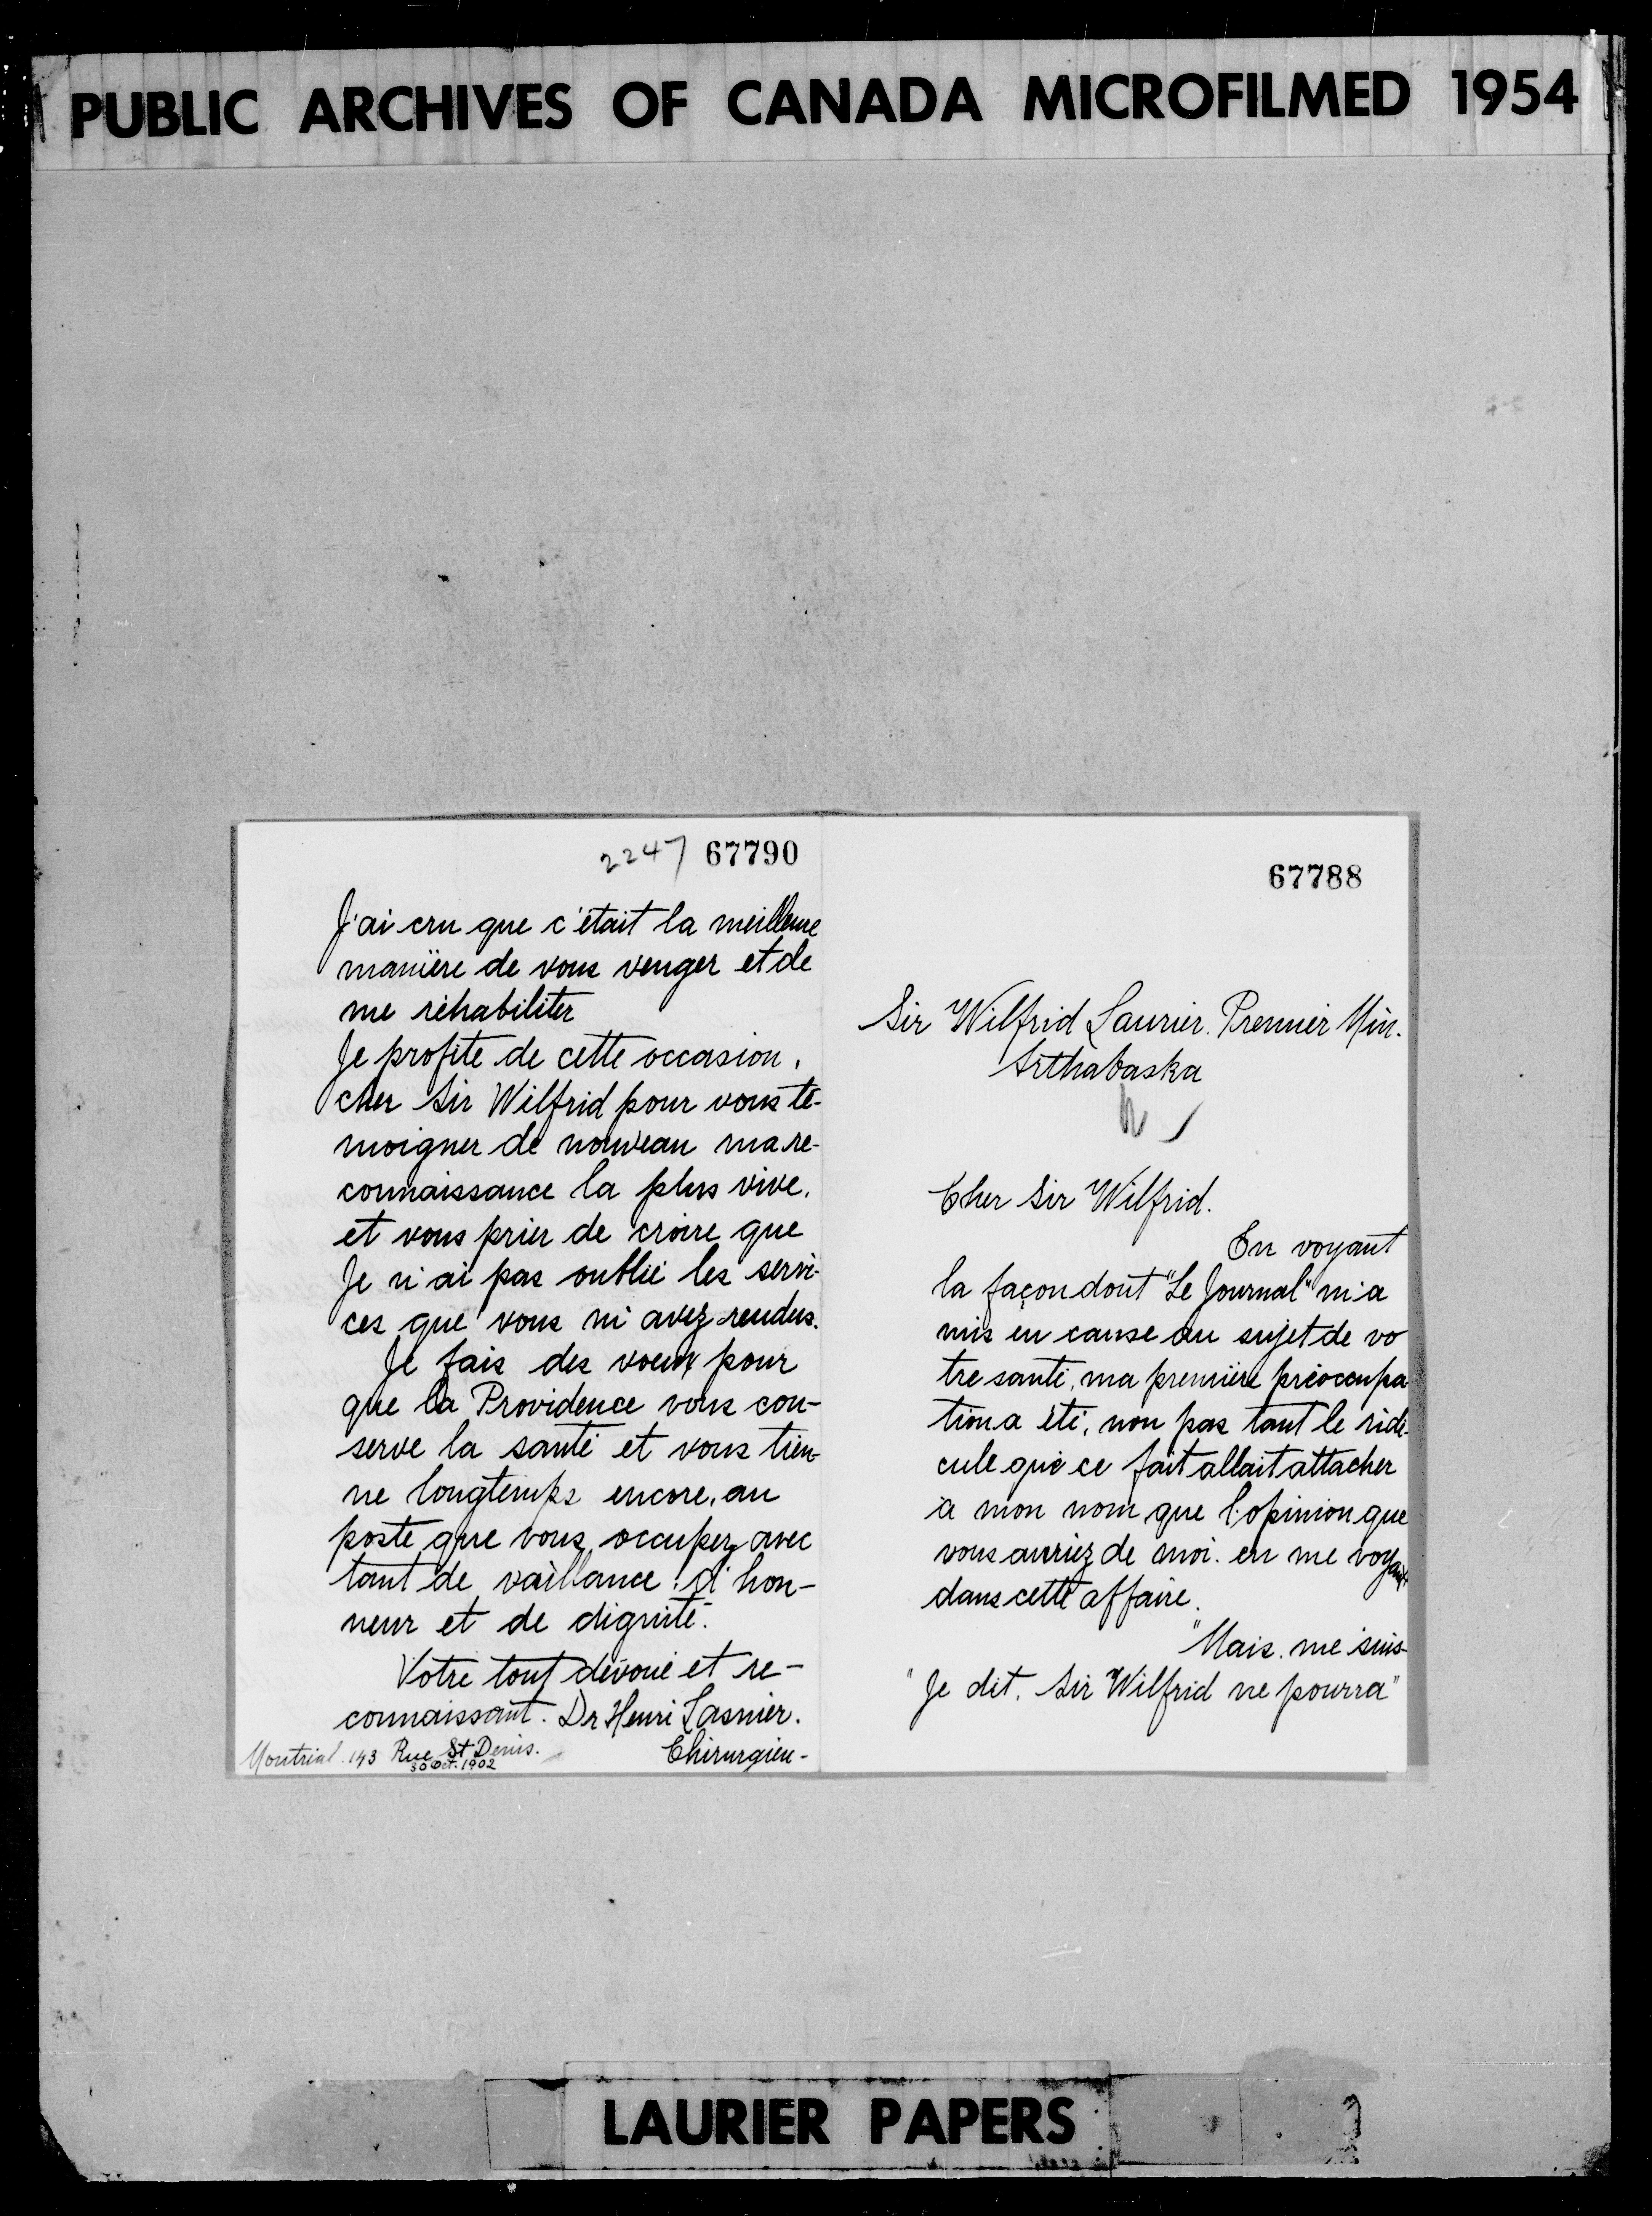 PUBLIC ARCHIVES OF CANADA MICROFILMED 1954
2247 67790
J'ai cru que c'était la meilleure
manière de vous venger et de
me réhabiliter
Je profite de cette occasion,
cher Sir Wilfrid pour vous té-
moigner de nouveau ma re-
connaissance la plus vive,
et vous prier de croire que
Je n'ai pas oublié les servi-
ces que vous m'avez rendus.
Je fais des voeux pour
que la Providence vous con-
serve la santé et vous tien-
ne longtemps encore, au
poste que vous occupez avec
tant de vaillance, d'hon-
neur et de dignité.
Votre tout dévoué et re-
connaissant. Dr Henri Lasnier.
Chirurgien-
Montréal. 143 Rue St Denis.
30 Oct. 1902
67788
Sir Wilfrid Laurier. Premier Min.
Arthabaska
Cher Sir Wilfrid.
En voyant
la façon dont "Le Journal" m'a
mis en cause au sujet de vo
tre santé, ma première préoccupa
tion a été, non pas tant le ridi-
cule que ce fait allait attacher
à mon nom que l'opinion que
vous auriez de moi. en me voyant
dans cette affaire.
"Mais. me suis-
"Je dit. Sir Wilfrid ne pourra"
LAURIER PAPERS